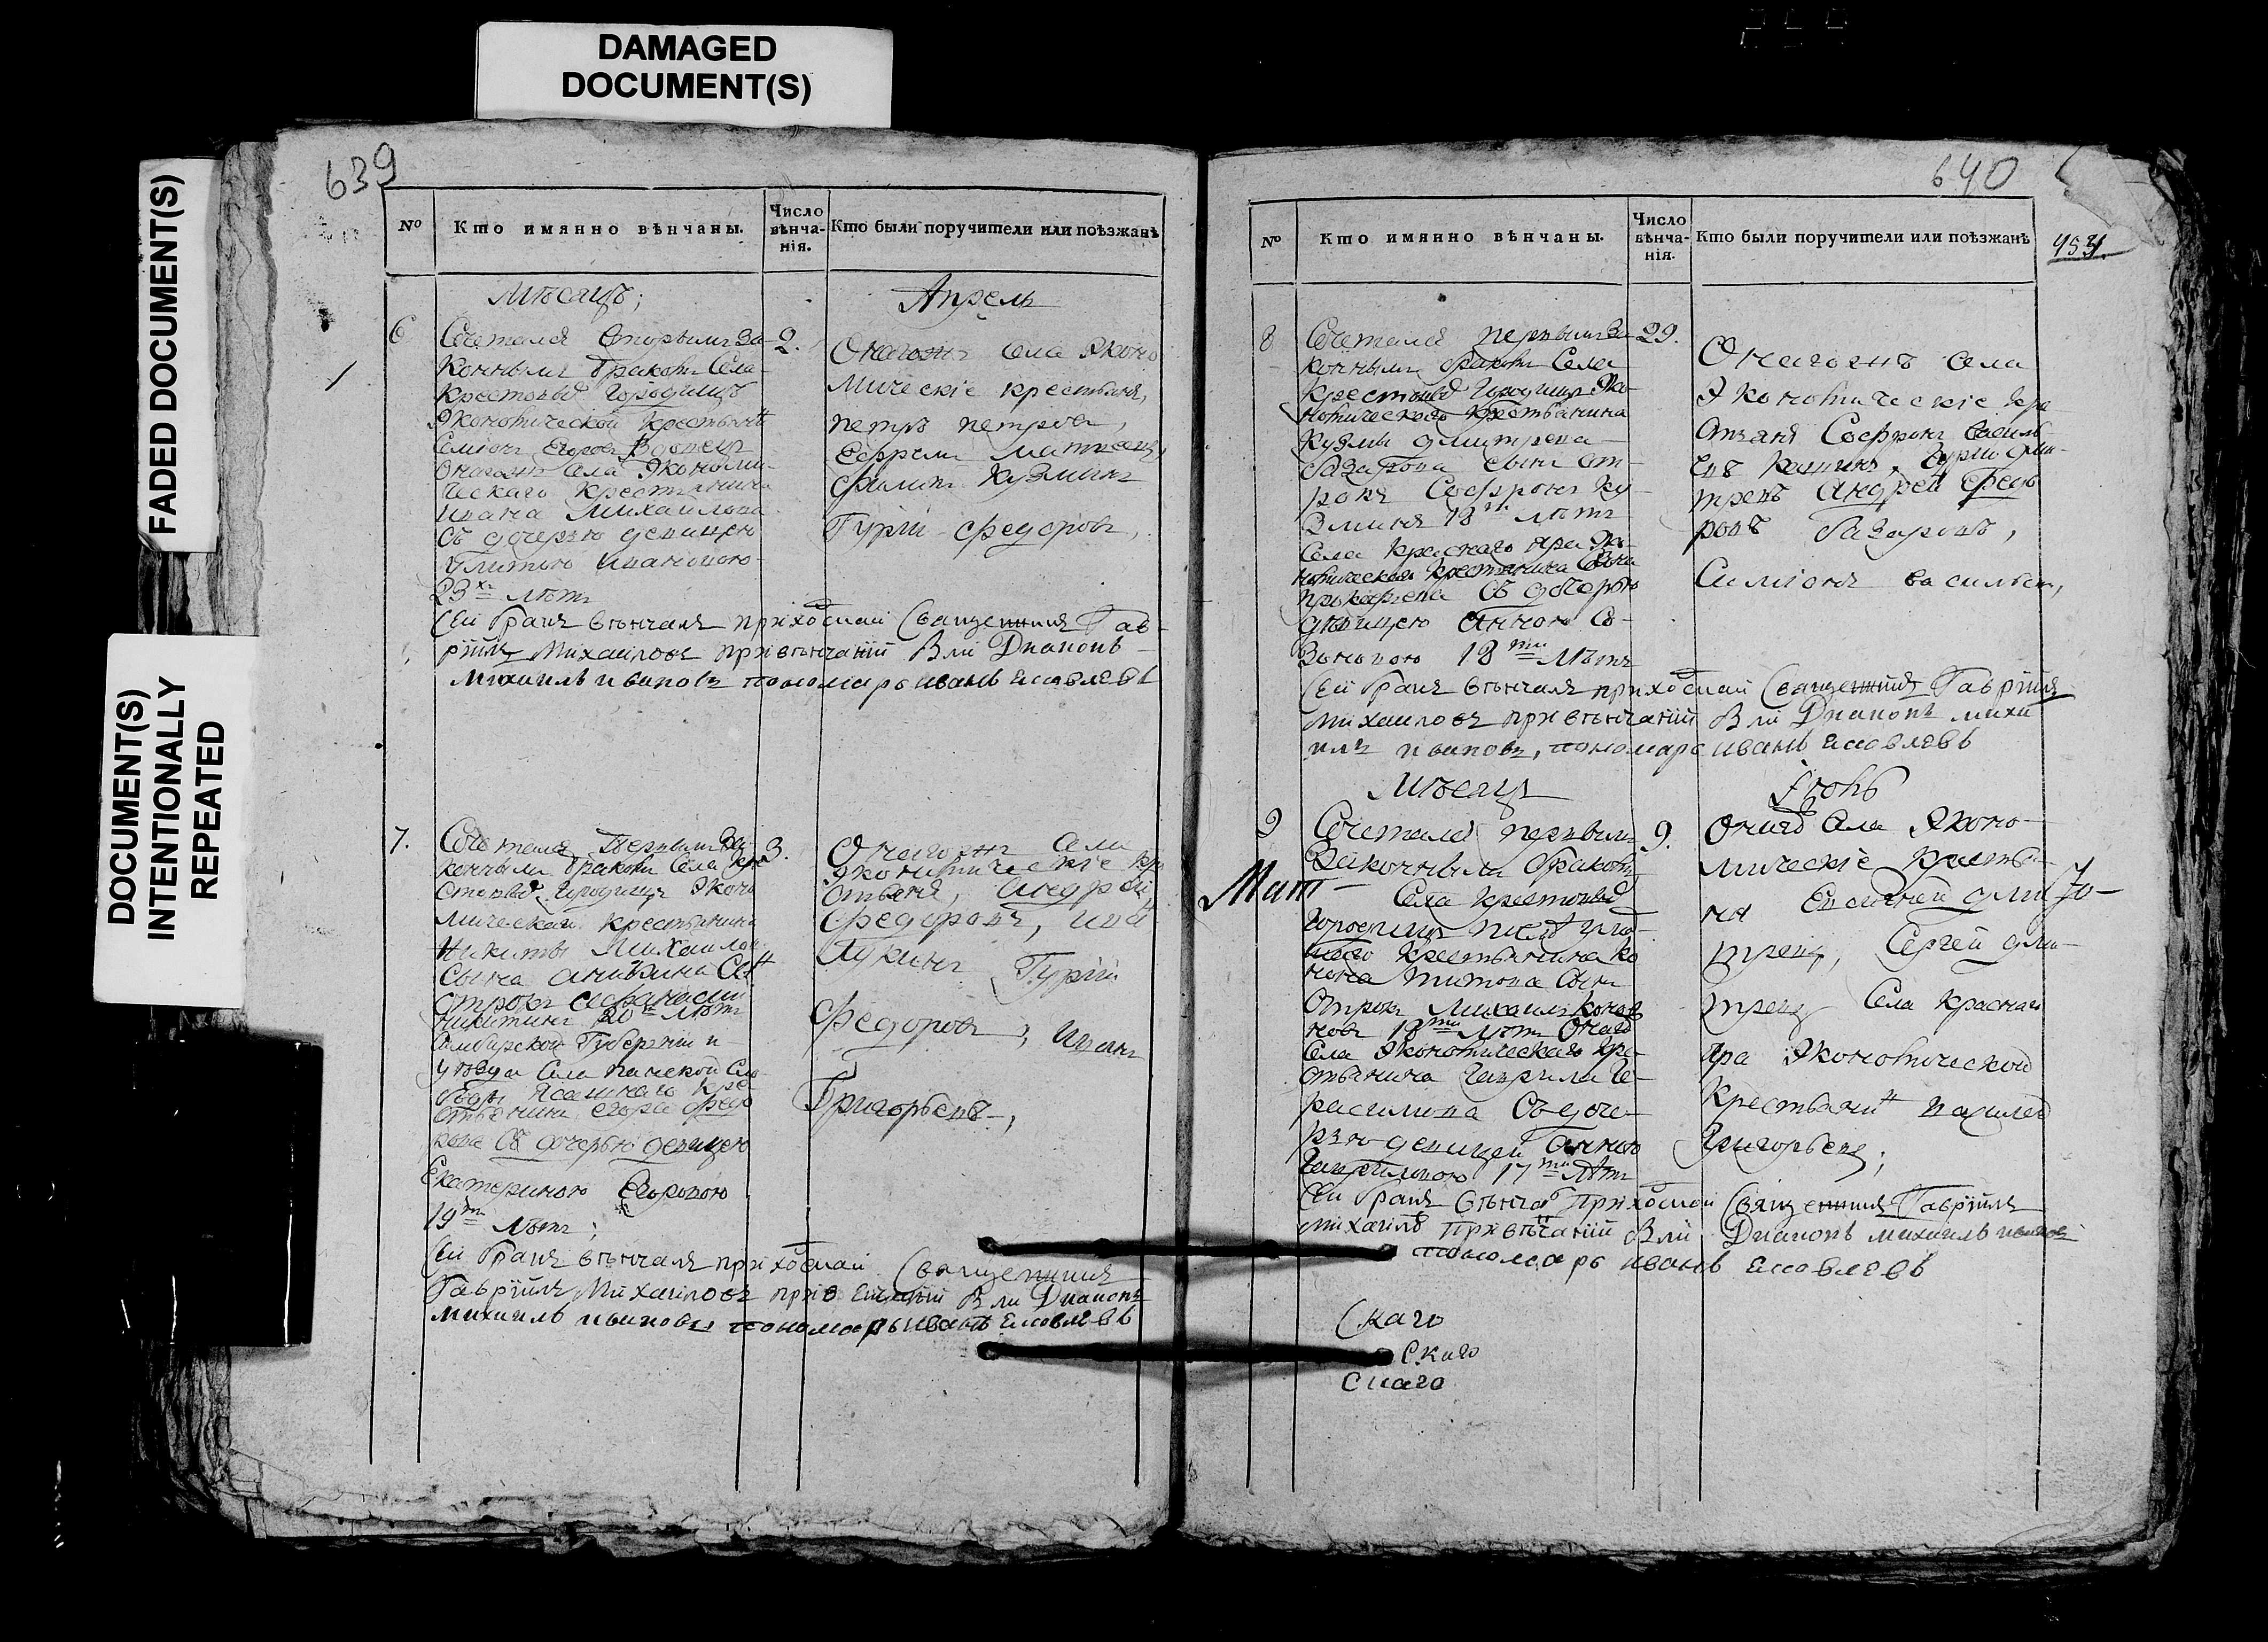 DAMAGED
DOCUMENT(S)
FADED DOCUMENT(S)
DOCUMENT(S)
INTENTIONALLY
REPEATED
639
№
Кто имянно вѣнчаны.
Число
вѣнча-
нія.
Кто были поручители или поѣзжанѣ
Мѣсяцъ;
Апрель
6
Сочетался вторымъ за-
коннымъ бракомъ Села
Крестовыхъ Городищъ
Экономической крестьянинъ
Симіонъ Егоровъ Вдовецъ
Онагожъ села Экономи-
ческаго крестьянина
Ивана Михайлова
съ дочерью девицею
Ивановою
23 хъ лѣтъ
2.
Онагожъ села Эконо
мическіе крестьяня,
петръ петровъ,
Ефремъ Матвеевъ,
Филипъ Кузминъ
Гурій Федоровъ,
Сей бракъ вѣнчалъ приходской Священникъ Гав-
ріилъ Михаиловъ при вѣнчаніи были Диаконъ
Михаилъ Ивановъ пономарь Иванъ Яковлевъ
7.
Сочетался Первымъ За-
коннымъ бракомъ Села Кре
стовыхъ Городищъ Эконо
мической крестьянина
Никиты Михаилова
Сына Аникина Сынъ
отрокъ Афанасий
Никитинъ 20 лѣтъ
Симбирской Губерніи и
уѣзда Села
Ясашнаго кре
стьянина Егора Федо
рова съ дочерью девицею
Екатериною Егоровою
19 ти лѣтъ;
3.
Онагожъ Села
Экономическіе кре
стьяня, Андрей
Федоровъ,
Лукинъ Гурій
Федоровъ, Иванъ
Григорьевъ,
Сей бракъ вѣнчалъ приходской Священникъ
Гавріилъ Михаиловъ при вѣнчаніи были Диаконъ
Михаилъ Ивановъ пономарь Иванъ Яковлевъ
640
№
Кто имянно вѣнчаны.
Число
вѣнча-
нія.
Кто были поручители или поѣзжанѣ
8
Сочетался первымъ за-
коннымъ бракомъ Села
Крестовыхъ Городищъ Эко-
номическаго крестьянина
Кузмы Дмитрева
Назарова сынъ от-
рокъ Софронъ Ку-
зминъ 18 ти лѣтъ
Села Краснаго Яра Эко-
номическаго крестьянина
Прокофева съ дочерью
девицею Анною Со-
зоновою 18 ти лѣтъ
29.
Онагожъ села
Экономическіе кре
стьяня Софронъ Василь
евъ Дми-
тревъ Андрей Федо
ровъ Назаровъ,
Симіонъ Васильевъ,
Сей бракъ вѣнчалъ приходской Священникъ Гавріилъ
Михаиловъ при вѣнчаніи были Диаконъ Миха
илъ Ивановъ, пономарь Иванъ Яковлевъ
Мѣсяцъ
Іюнь
9
Сочетался первымъ
Законнымъ бракомъ
Села Крестовыхъ
Городищъ
крестьянина Ко
нона Титова Сынъ
Отрокъ Михаилъ Коно
новъ 18 ти лѣтъ Онаго
Села Экономическаго кре-
стьянина Гаврила Ге-
расимова Съ доче-
рью девицей Анною
Гавриловою 17 ти лѣтъ
9.
Онагожъ Села Эконо-
мическіе крестья-
ня Дми
тревъ, Сергей Дми-
тревъ Села Краснаго
Яра Экономической
Крестьянинъ
Григорьевъ;
Сей бракъ вѣнчалъ приходской Священникъ Гавріилъ
Михаиловъ при вѣнчаніи были Диаконъ Михаилъ Ивановъ
пономарь Иванъ Яковлевъ
скаго
скаго